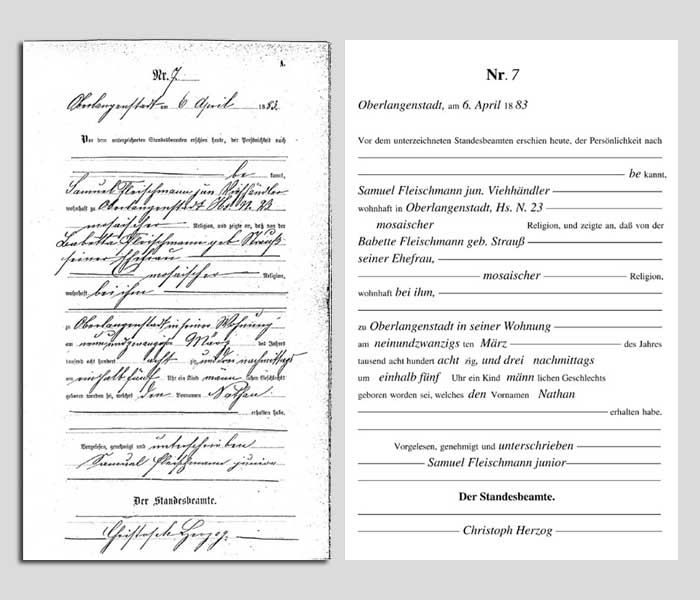 A.
Nr. 7
Oberlangenstadt am 6 April 1883.
Vor dem unterzeichneten Standesbeamten erschien heute, der Persönlichkeit nach
be kannt,
Samuel Fleischmann jun Viehhändler
wohnhaft zu Oberlangenstadt Hs. N. 23
mosaischer Religion, und zeigte an, daß von der
Babetta Fleischmann geb Strauß
seiner Ehefrau
mosaischer Religion,
wohnhaft bei ihm
zu Oberlangenstadt in seiner Wohnung
am neunundzwanzigsten März des Jahres
tausend acht hundert acht zig und drei nachmittags
um einhalb fünf Uhr ein Kind männ lichen Geschlechts
geboren worden sei, welches den Vornamen Nathan
erhalten habe.
Vorgelesen, genehmigt und unterschrieben
Samuel Fleischmann junior
Der Standesbeamte.
Christoph Herzog
Nr. 7
Oberlangenstadt, am 6. April 18 83
Vor dem unterzeichneten Standesbeamten erschien heute, der Persönlichkeit nach
be kannt,
Samuel Fleischmann jun. Viehhändler
wohnhaft in Oberlangenstadt, Hs. N. 23
mosaischer Religion, und zeigte an, daß von der
Babette Fleischmann geb. Strauß
seiner Ehefrau,
mosaischer Religion,
wohnhaft bei ihm,
zu Oberlangenstadt in seiner Wohnung
am neinundzwanzigs ten März des Jahres
tausend acht hundert acht zig, und drei nachmittags
um einhalb fünf Uhr ein Kind männ lichen Geschlechts
geboren worden sei, welches den Vornamen Nathan
erhalten habe.
Vorgelesen, genehmigt und unterschrieben
Samuel Fleischmann junior
Der Standesbeamte.
Christoph Herzog